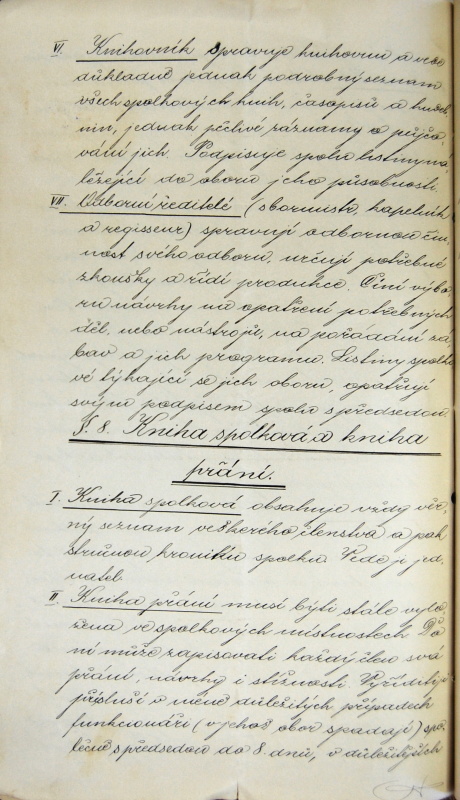 VI. Knihovník spravuje knihovnu a vede
důkladně jednak podrobný seznam
všech spolkových knih, časopisů a
jednak pečlivé záznamy o půjčo-
vání jich. Podpisuje spolu listiny ná-
ležející do oboru jeho působnosti.
VII. Odborní ředitelé (sbormistr, kapelník
a regisseur) spravují odbornou čin-
nost svého odboru, určují potřebné
zkoušky a řídí produkce. Činí výbo-
ru návrhy na opatření potřebných
děl, nebo nástrojů, na pořádání zá-
bav a jich programu. Listiny spolko-
vé týkající se jich oboru, opatřují
svým podpisem spolu s předsedou.
§. 8. Kniha spolková a kniha
přání.
I. Kniha spolková obsahuje vždy věr-
ný seznam veškerého členstva a pak
stručnou kroniku spolku. Vede ji jed-
natel.
II. Kniha přání musí býti stále vylo-
žena ve spolkových místnostech. Do
ní může zapisovati každý člen svá
přání, návrhy i stížnosti. Vyříditi je
přísluší v méně důležitých případech
funkcionáři (v jehož obor spadají) spo-
lečně s předsedou do 8 dnů, v důležitějších